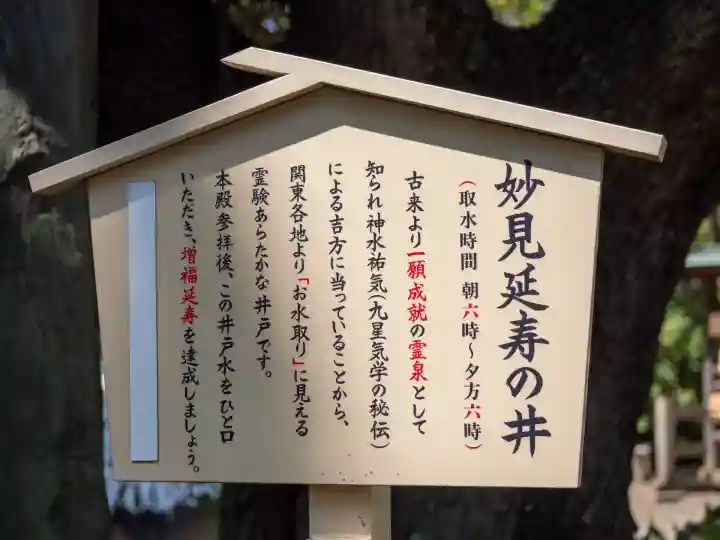 妙見延寿の井
（取水時間 朝六時～夕方六時）
古来より一願成就の霊泉として
知られ神水祐気(九星気学の秘伝)
による吉方に当っていることから、
関東各地より「お水取り」に見える
霊験あらたかな井戸です。
本殿参拝後、この井戸水をひと口
いただき、増福延寿を達成しましょう。